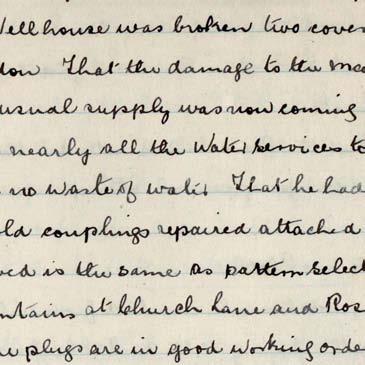 Wellhouse was broken two cover
don That the damage to the Mac
usual supply was now coming
nearly all the water services to
no waste of water That he had
old couplings repaired attached
ved is the same as pattern select
ntains at Church Lane and Ros
e plugs are in good working orde